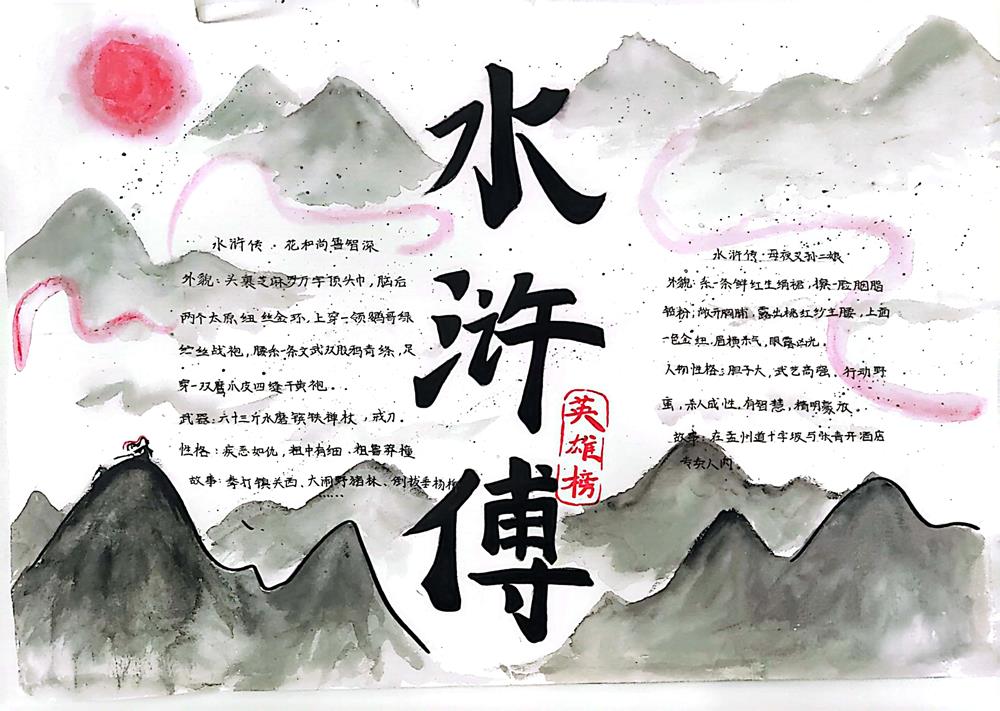 水浒傅
英雄榜
水浒传·花和尚鲁智深
外貌:头裹芝麻罗万字顶头巾,脑后
两个太原纽丝金环,上穿一领鹦哥绿
纻丝战袍,腰系一条文武双股鸦青绦,足
穿一双鹰爪皮四缝干黄袍。
武器:六十三斤水磨镔铁禅杖,戒刀.
性格:疾恶如仇,粗中有细.粗鲁莽撞
故事:拳打镇关西、大闹野猪林、倒拔垂杨柳
......
水浒传·母夜叉孙二娘
外貌:系一条鲜红生绢裙,搽一脸胭脂
铅粉,敞开胸脯,露出桃红纱主腰,上面
一色金纽.眉横杀气,眼露凶光。
人物性格:胆子大,武艺高强.行动野
蛮,杀人成性,有智慧,精明豪放。
故事:在孟州道十字坡与张青开酒店
专卖人肉.